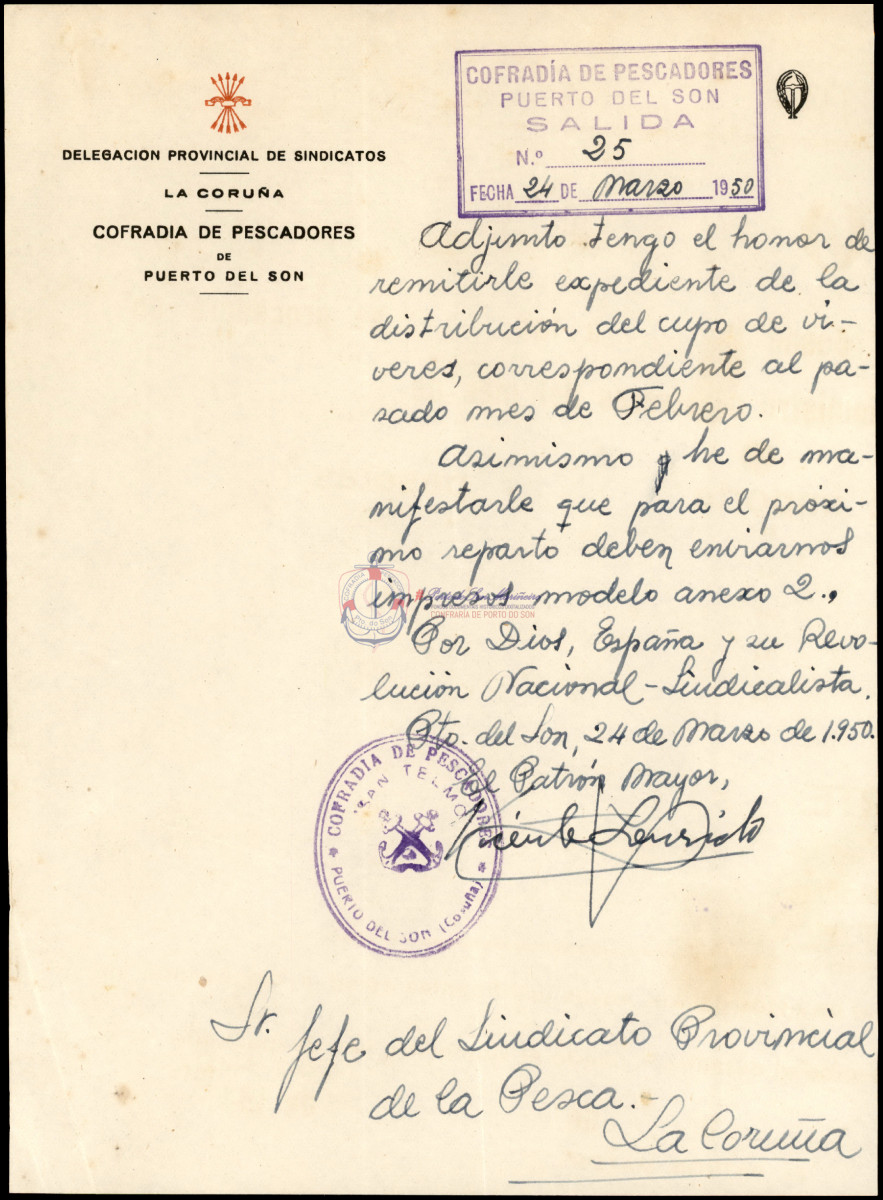 DELEGACION PROVINCIAL DE SINDICATOS
LA CORUÑA
COFRADIA DE PESCADORES
DE
PUERTO DEL SON
COFRADÍA DE PESCADORES
PUERTO DEL SON
SALIDA
N.º 25
FECHA 24 DE Marzo 1950
Adjunto tengo el honor de
remitirle expediente de la
distribución del cupo de ví-
veres, correspondiente al pa-
sado mes de Febrero.
Asimismo he de ma-
nifestarle que para el próxi-
mo reparto deben enviarnos
impresos modelo anexo 2.,
Por Dios, España y su Revo-
lución Nacional-Sindicalista.
Pto. del Son, 24 de Marzo de 1.950.
El Patrón Mayor,
Vicente
COFRADIA DE PESCADORES
"SAN TELMO"
PUERTO DEL SON (Coruña)
CONFRARÍA DE PORTO DO SON
Pto. do Son
Sr. Jefe del Sindicato Provincial
de la Pesca.-
La Coruña